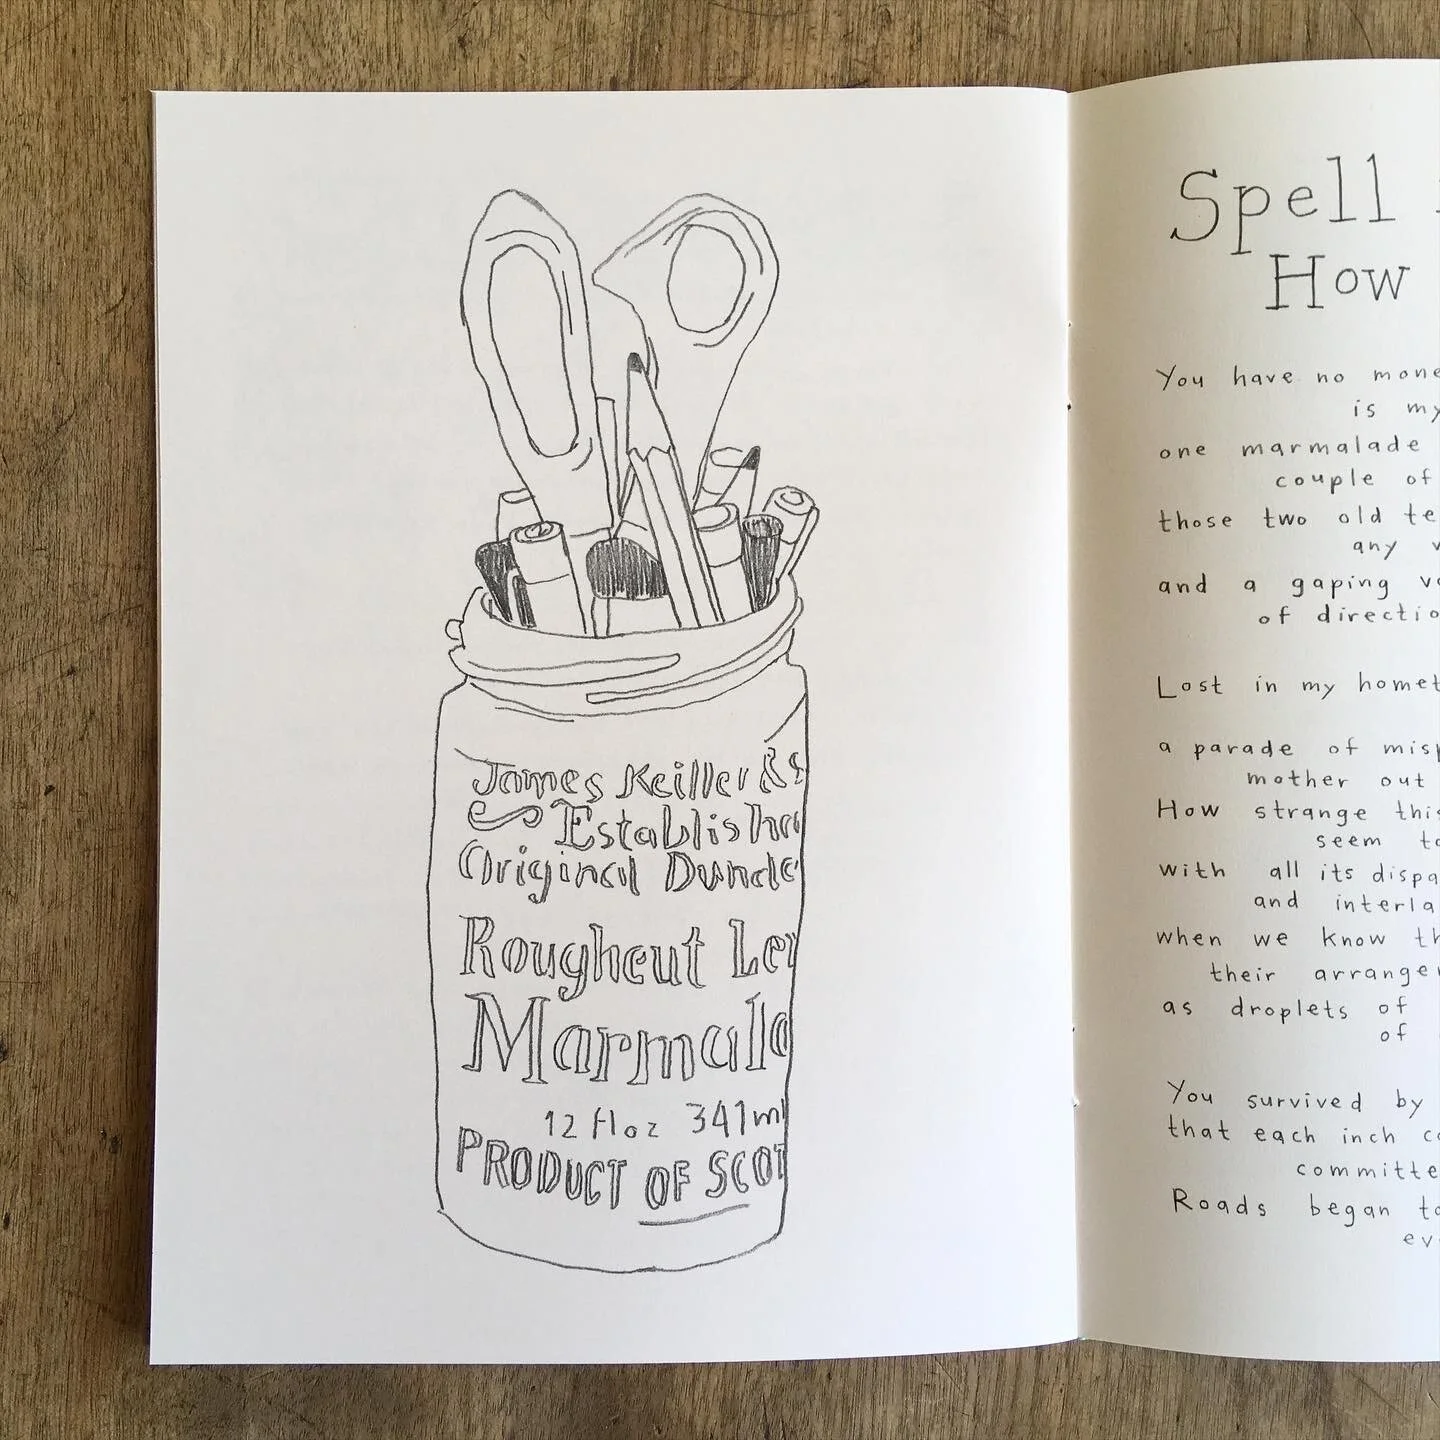 James Keiller &
Establish
Original Dunde
Roughcut Le
Marmala
12 fl oz 341ml
PRODUCT OF SCOT
Spell
How
You have no mone
is my
one marmalade
couple of
those two old te
any
and a gaping
of directio
Lost in my homet
a parade of misp
mother out
How strange this
seem to
with all its dispa
and interla
when we know th
their arrange
as droplets of
of
You survived by
that each inch co
committe
Roads began to
ev